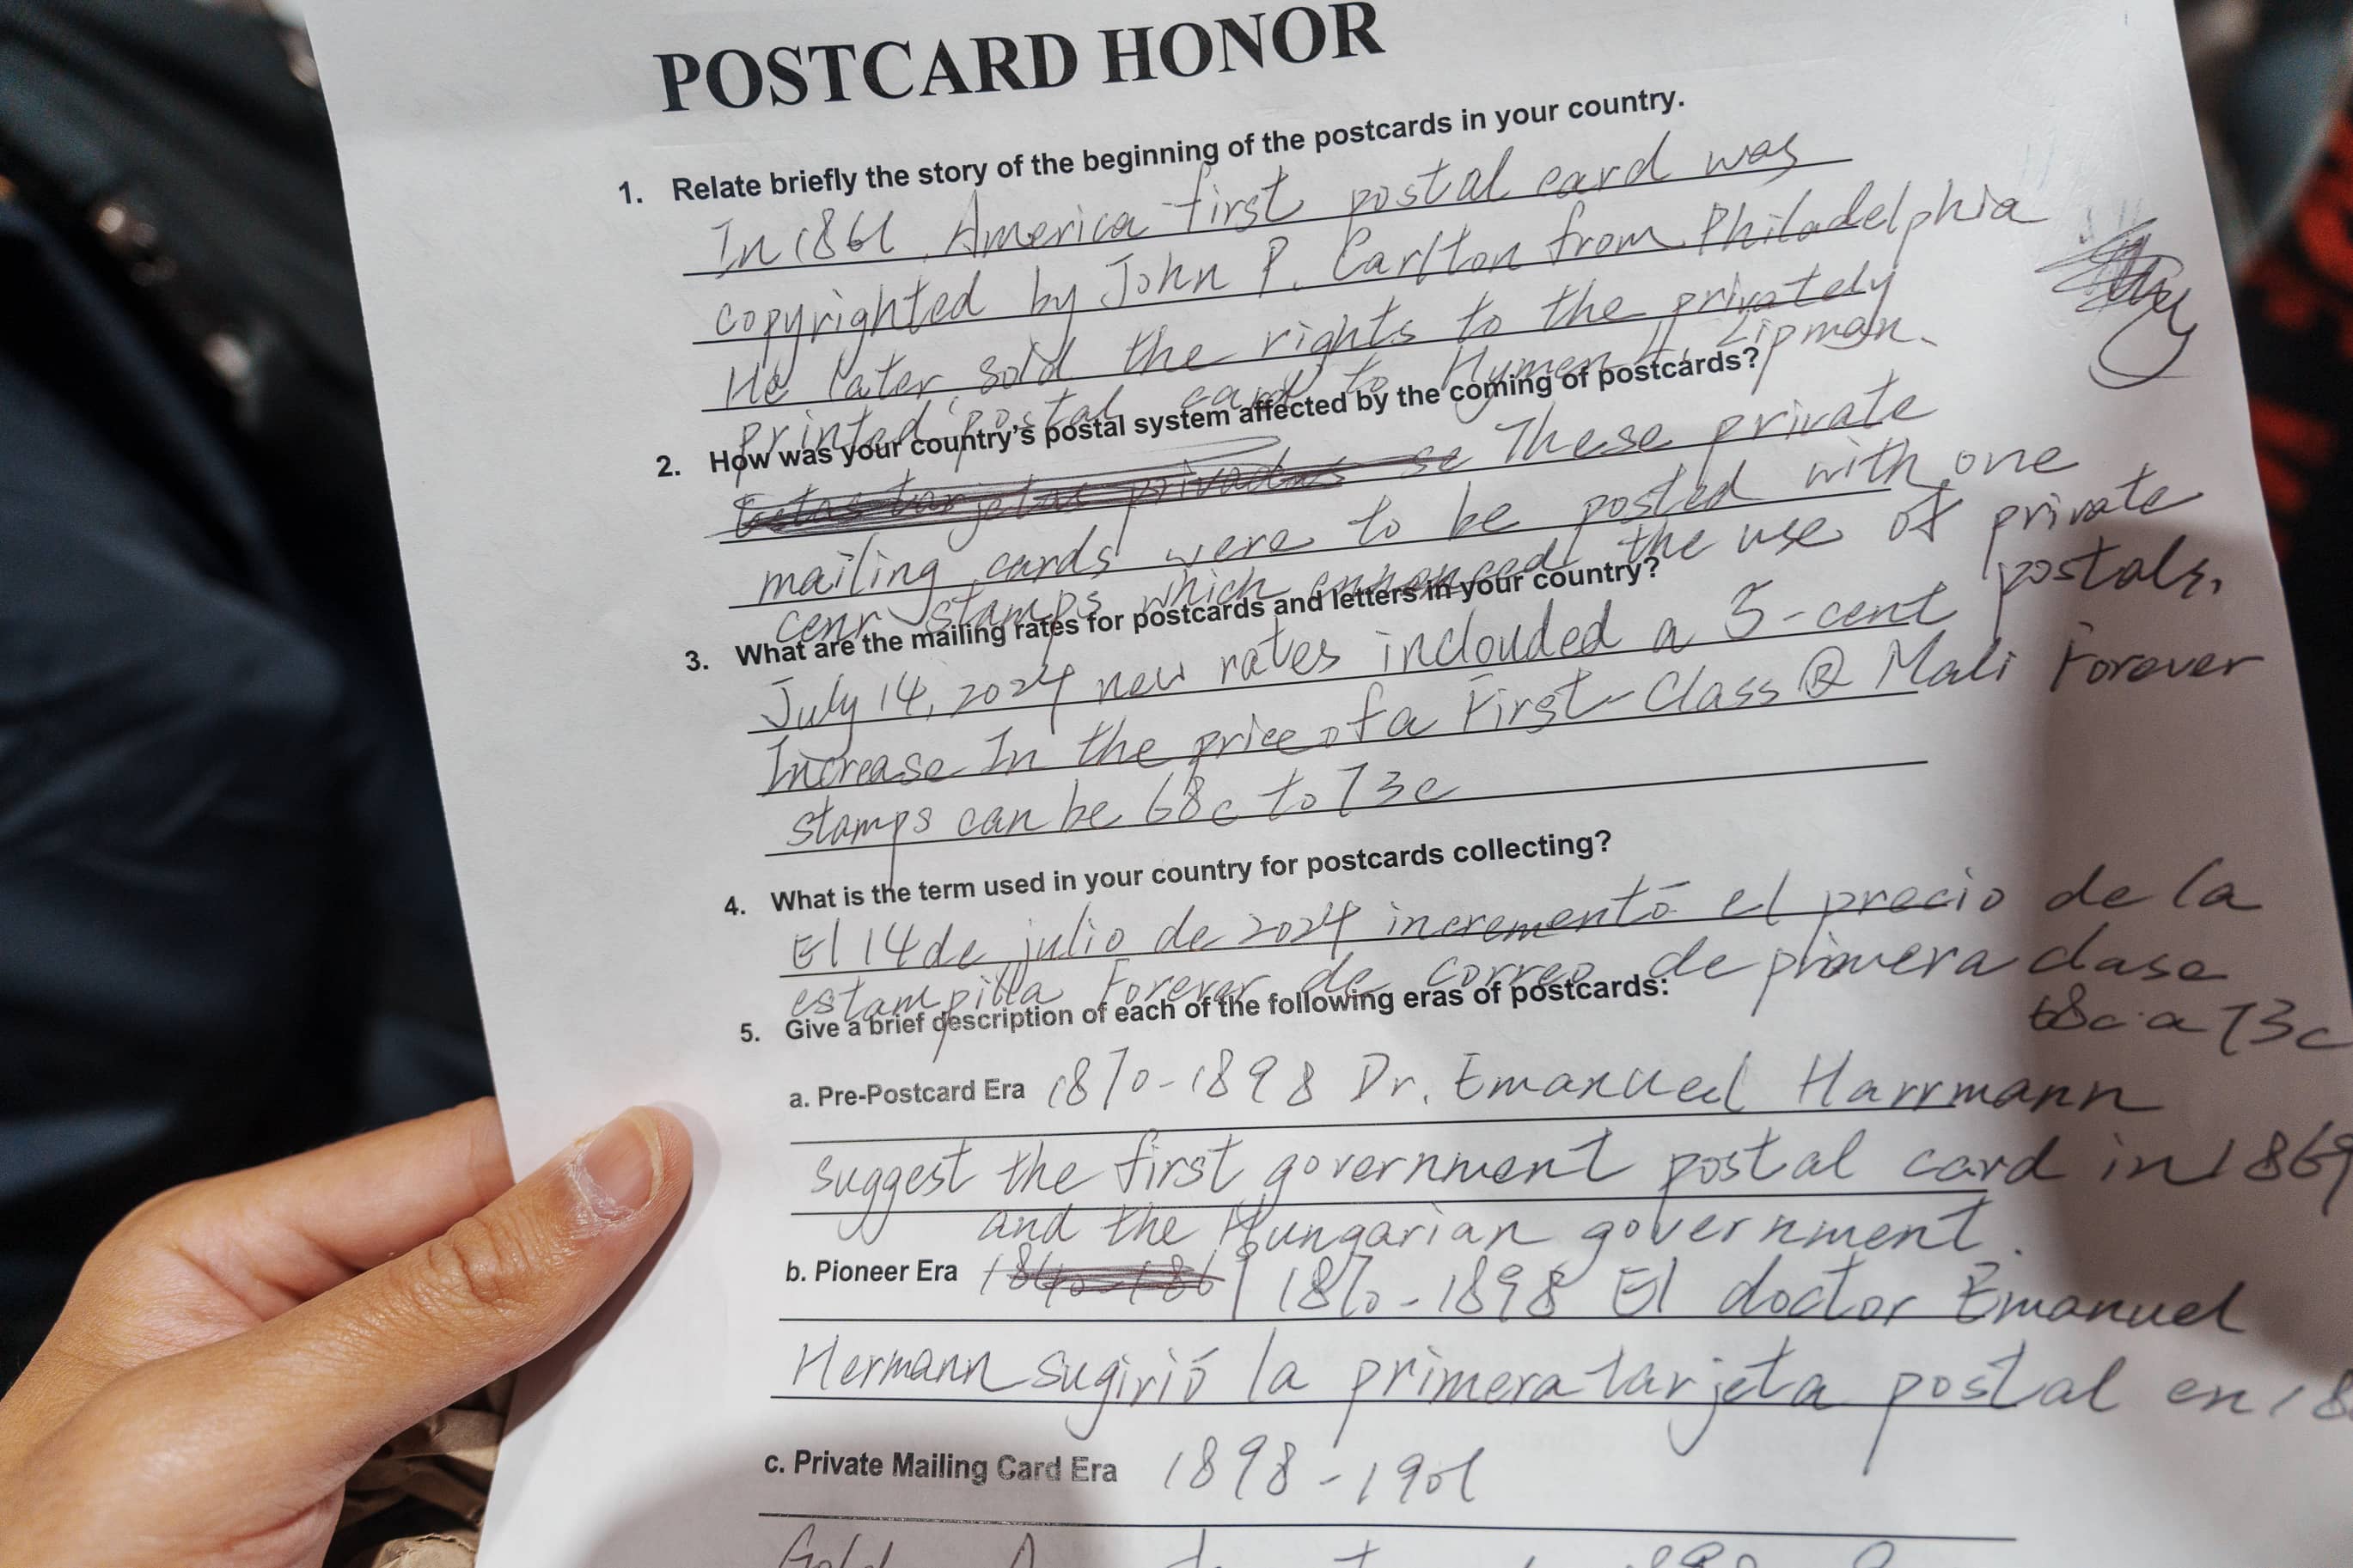 POSTCARD HONOR
1. Relate briefly the story of the beginning of the postcards in your country.
In 1861, America first postal card was
copyrighted by John P. Carlton from Philadelphia
He later sold the rights to the privately
printed postal card to Hymen L. Lipman.
2. How was your country's postal system affected by the coming of postcards?
se These private
mailing cards were to be posted with one
cenr stamps which enhanced the use of private
postals.
3. What are the mailing rates for postcards and letters in your country?
July 14, 2024 new rates inclouded a 5-cent
Increase In the price of a First-Class ® Mali Forever
stamps can be 68c to 73c
4. What is the term used in your country for postcards collecting?
El 14 de julio de 2024 incrementó el precio de la
estampilla Forever de correo de primera clase
68c a 73c
5. Give a brief description of each of the following eras of postcards:
a. Pre-Postcard Era 1870-1898 Dr. Emanuel Harrmann
suggest the first government postal card in 1869
and the Hungarian government.
b. Pioneer Era 1870-1898 El doctor Emanuel
Hermann sugirió la primera tarjeta postal en 18
c. Private Mailing Card Era 1898-1901